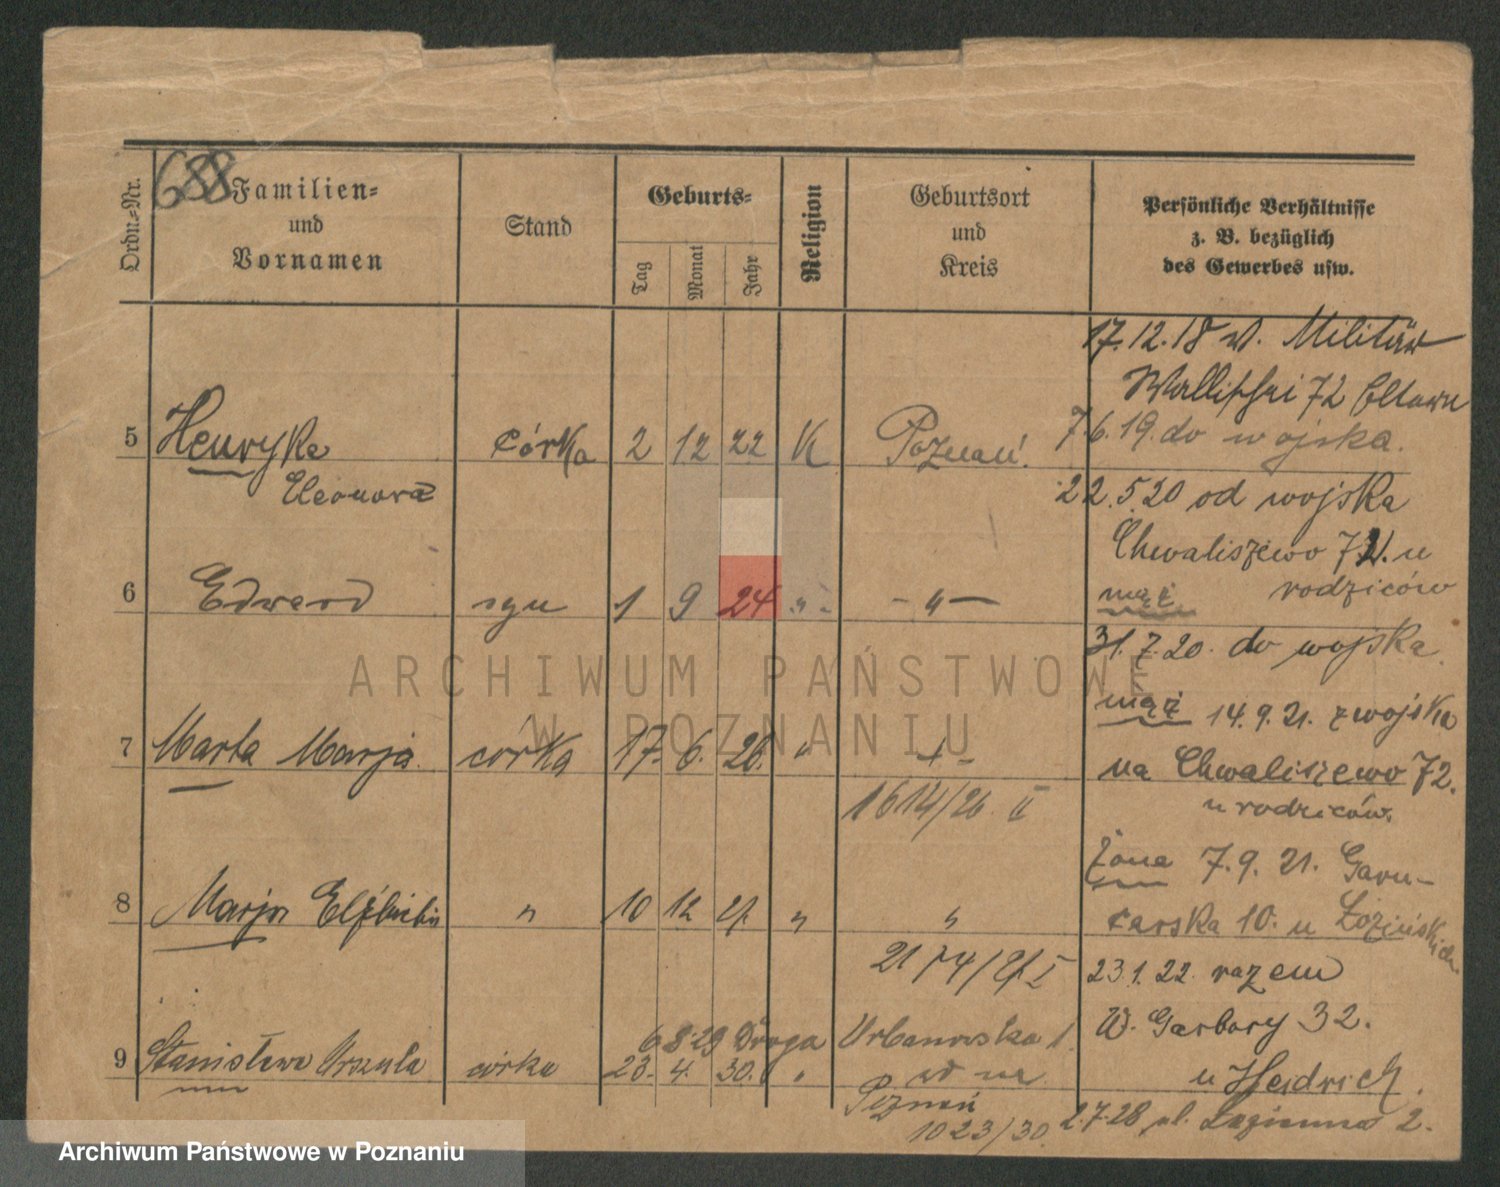 688
Ordn.-Nr.
Familien-
und
Vornamen
Stand
Geburts-
Tag
Monat
Jahr
Religion
Geburtsort
und
Kreis
Persönliche Verhältnisse
z. B. bezüglich
des Gewerbes usw.
5 Henryka córka 2 12 22 K Poznań.
Eleonora
6 Edward syn 1 9 24 " - " -
7 Marta Marja córka 17. 6. 26. " - " -
1614/26. II
8 Marja Elżbieta " 10 12 27. " "
2174/27. I
6 8.29 Droga Urbanowska 1.
9 Stanisława Urszula córka 23. 4. 30. "
Poznań
1023/30.
17.12.18 v. Militär
Wallischei 72 Eltern
7.6.19. do wojska.
22.5.20 od wojska
Chwaliszewo 72. u
mąż rodziców
31.7.20. do wojska.
mąż 14.9.21. z wojska
na Chwaliszewo 72.
u rodziców.
żona 7.9.21. Garn-
carska 10. u Łozińskich
23.1.22. razem
W. Garbary 32.
u Heidrich.
2.7.28 ul. Łazienna 2.
ARCHIWUM PAŃSTWOWE
W POZNANIU
Archiwum Państwowe w Poznaniu